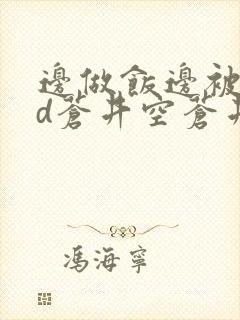 邊做飯邊被
d蒼井空蒼井
馮海寧